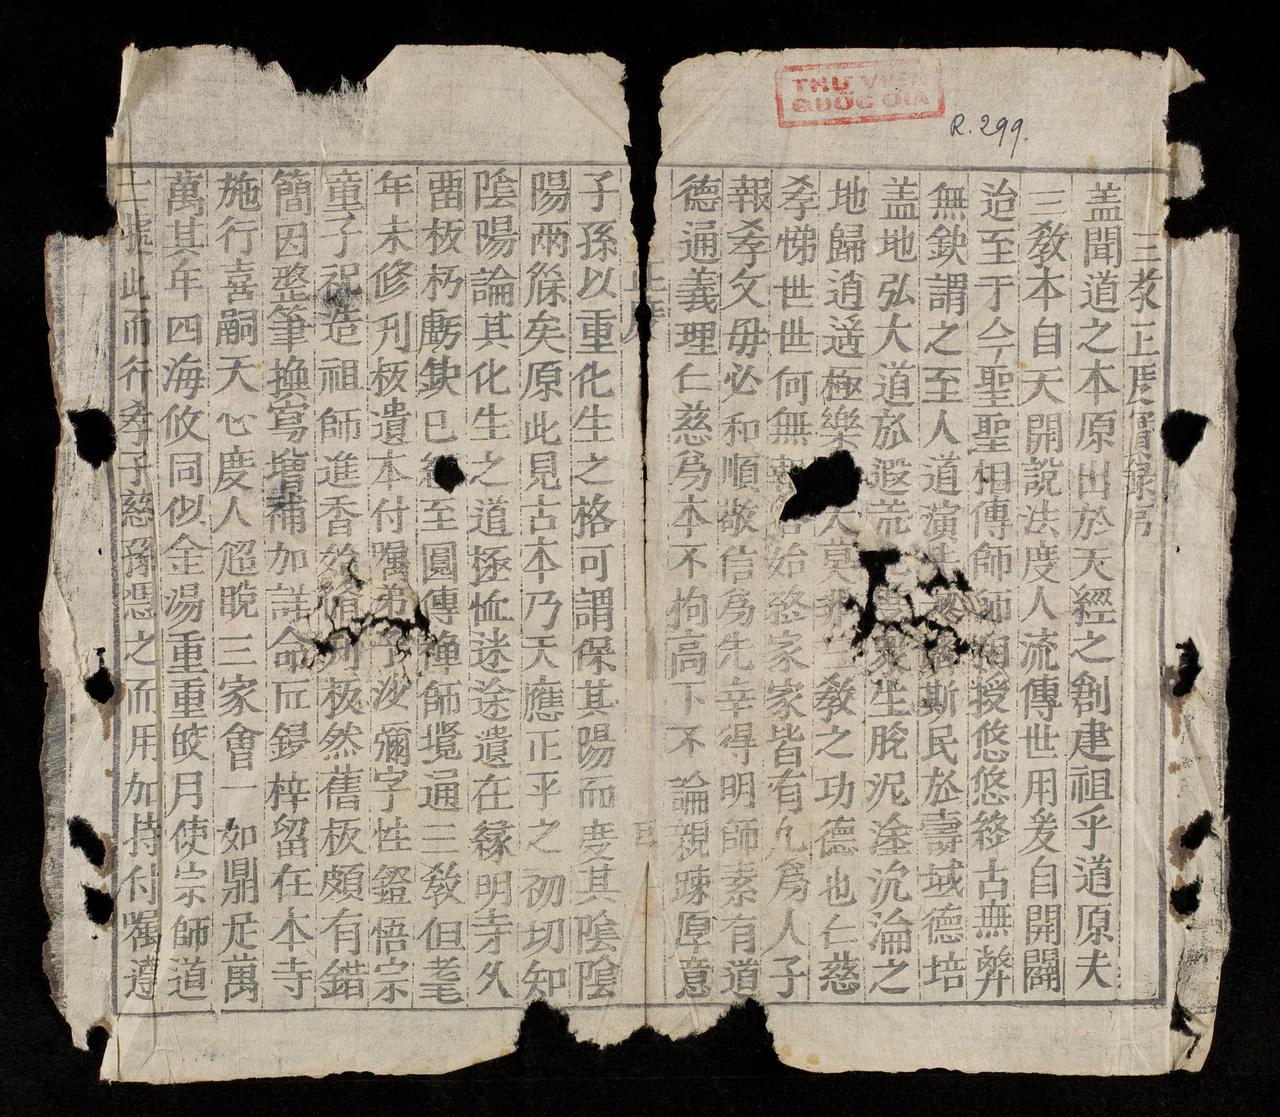 THƯ VIỆN
QUỐC GIA
R. 299.
三教正度實錄序
盖聞道之本原出於天經之創建祖乎道原夫
三教本自天開說法度人流傳世用爰自開闢
迨至于今聖聖相傳師師相授悠悠終古無弊
無欽謂之至人道演斯民於壽域德培
盖地弘大道於遐荒衆生脫泥塗沉淪之
地歸逍遥極樂大莫非三教之功德也仁慈
孝悌世世何無始終家家皆有凢爲人子
報孝父毋必和順敬信爲先幸得明師素有道
德通義理仁慈爲本不拘高下不論親踈厚意
正度
子孫以重化生之格可謂保其陽而度其陰陰
陽兩𥿄矣原此見古本乃天應正平之初切知
陰陽論其化生之道拯恤迷途遺在緣明寺久
畱板朽虧欽已至圓傳禅師𡑞通三教但耄
年未修刋板遺本付囑弟子沙彌字性鐙悟宗
童子祝造祖師進香板然舊板頗有錯
簡因整筆換寫增補加詳命匠鋟梓留在本寺
施行喜嗣天心度人超晚三家會一如鼎足萬
萬其年四海攸同似金湯重重皎月使宗師道
此而行孝子慈孫憑之而用加持付囑遵